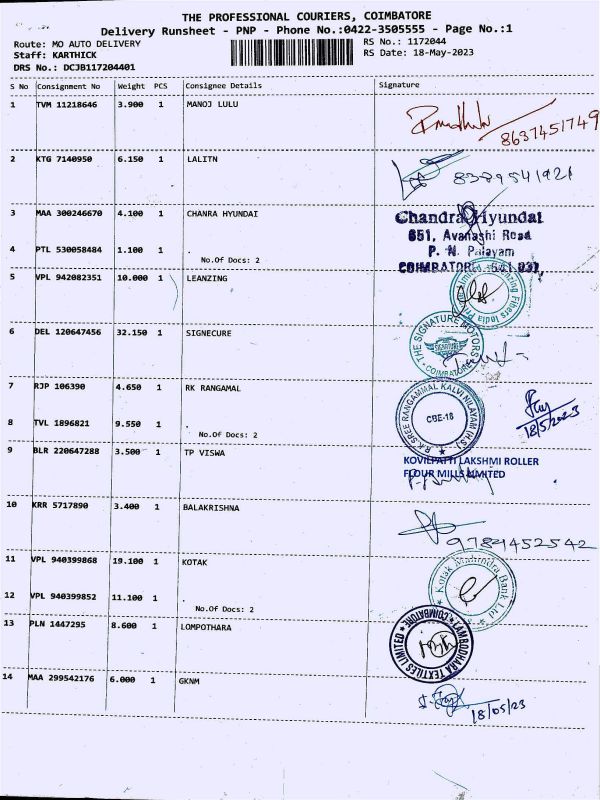 THE PROFESSIONAL COURIERS, COIMBATORE
Delivery Runsheet - PNP - Phone No.:0422-3505555 - Page No.:1
Route: MO AUTO DELIVERY
RS No.: 1172044
Staff: KARTHICK
RS Date: 18-May-2023
DRS No.: DCJB117204401
S No Consignment No Weight PCS Consignee Details Signature
1 TVM 11218646 3.900 1 MANOJ LULU
8637451749
2 KTG 7140950 6.150 1 LALITN
8389541921
3 MAA 300246670 4.100 1 CHANRA HYUNDAI
Chandra Hyundai
651, Avanashi Road
P. N. Palayam
COIMBATORE - 641 037.
4 PTL 530058484 1.100 1 .
No.Of Docs: 2
5 VPL 942082351 10.000 1 LEANZING
Fibers India
6 DEL 120647456 32.150 1 SIGNECURE
THE SIGNATURE MOTORS
COIMBATORE
7 RJP 106390 4.650 1 RK RANGAMAL
R.K. SREE RANGAMMAL KALVI NILAYAM (H.S.)
CBE-18
18/5/2023
8 TVL 1896821 9.550 1 .
No.Of Docs: 2
9 BLR 220647288 3.500 1 TP VISWA
KOVILPATTI LAKSHMI ROLLER
FLOUR MILLS LIMITED
10 KRR 5717890 3.400 1 BALAKRISHNA
9789452542
11 VPL 940399868 19.100 1 KOTAK
Kotak Mahindra Bank Ltd
12 VPL 940399852 11.100 1 .
No.Of Docs: 2
13 PLN 1447295 8.600 1 LOMPOTHARA
LAMBODHARA TEXTILES LIMITED
COIMBATORE
14 MAA 299542176 6.000 1 GKNM
18/05/23